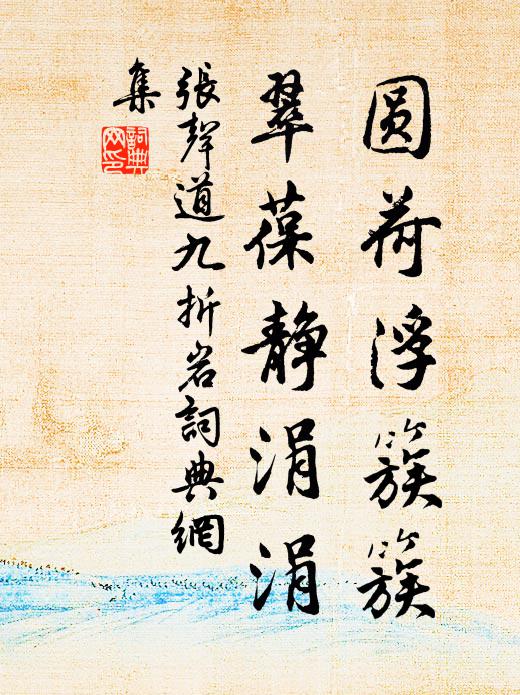 圆荷浮簇簇
翠葆静涓涓
張聲道九折岩詞典網
集
詞典网印